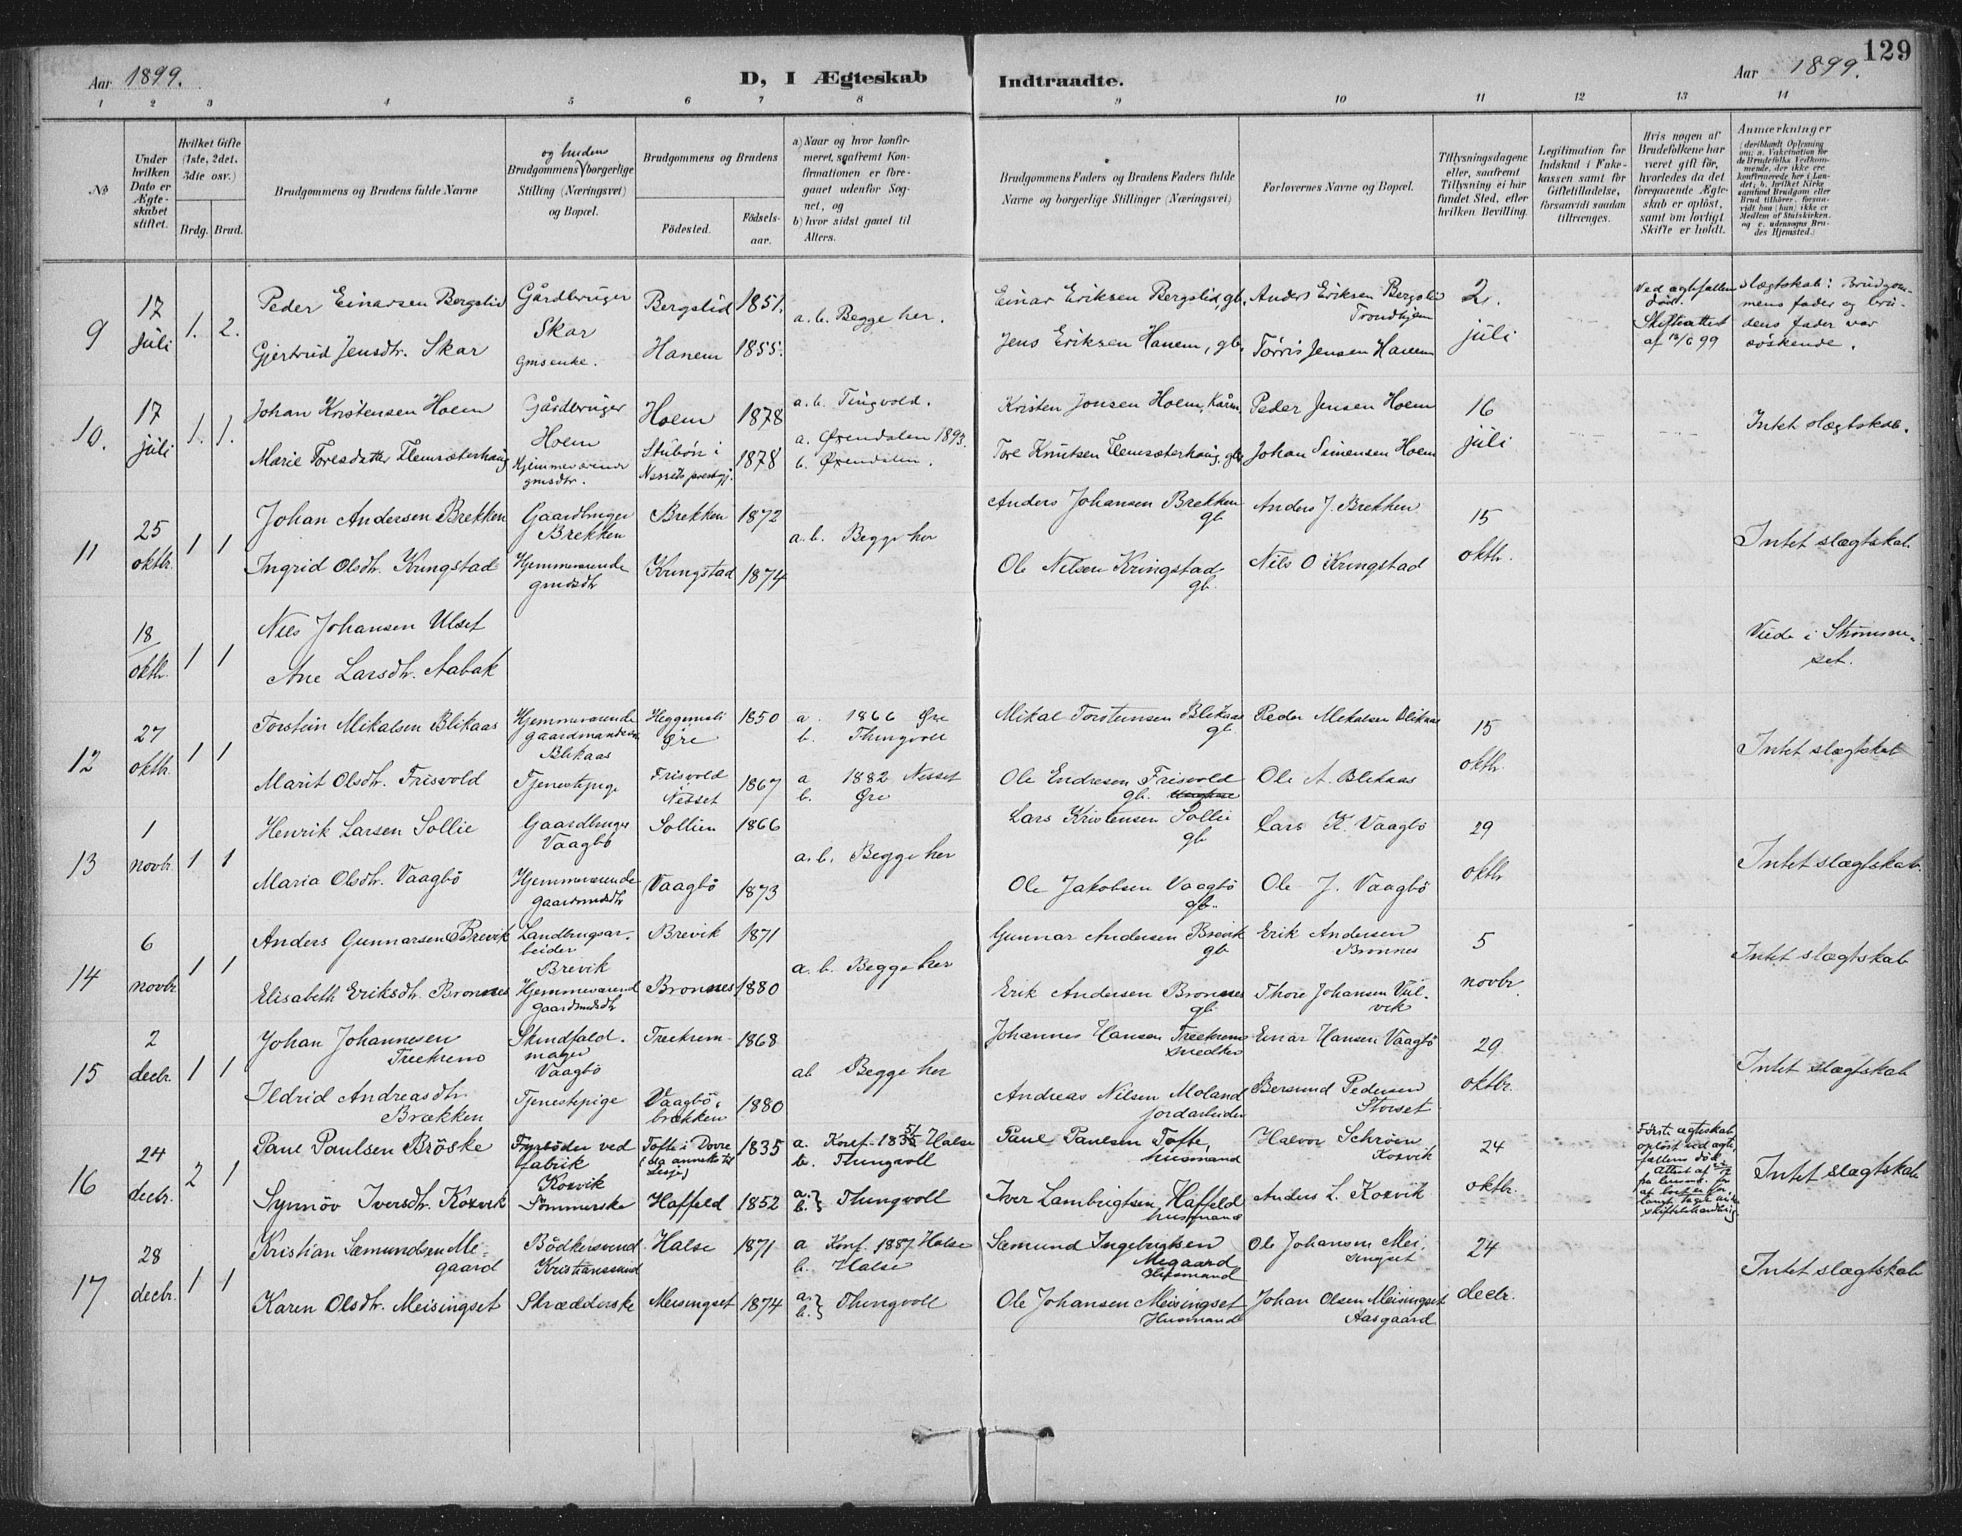 129
Aar 1899.
D, I Ægteskab Indtraadte.
Aar 1899.
1 2 3 4 5 6 7 8 9 10 11 12 13 14
No
Under hvilken Dato er Ægteskabet stiftet.
Hvilket Gifte (1ste, 2det, 3die osv.)
Brdg. Brud.
Brudgommens og Brudens fulde Navne
og brudens
Brudgommens borgerlige Stilling (Næringsvei) og Bopæl.
Brudgommens og Brudens
Födested.
Födsels-aar.
a) Naar og hvor konfirmeret, saafremt Konfirmationen er foregaaet udenfor Sognet, og
b) hvor sidst gaaet til Alters.
Brudgommens Faders og Brudens Faders fulde Navne og borgerlige Stillinger (Næringsvei)
Forlovernes Navne og Bopæl.
Tillysningsdagene eller, saafremt Tillysning ei har fundet Sted, efter hvilken Bevilling.
Legitimation for Indskud i Enkekassen samt for Giftetilladelse, forsaavidt saadan tiltrænges.
Hvis nogen af Brudefolkene har været gift för, hvorledes da det foregaaende Ægteskab er oplöst, samt om lovligt Skifte er holdt.
Anmærkninger
(deriblandt Oplysning om: a. Vakcination for de Brudefolks Vedkommende, der ikke ere konfirmerede her i Landet; b. hvilket Kirkesamfund Brudgom eller Brud tilhörer, forsaavidt han (hun) ikke er Medlem af Statskirken, og c. udensogns Brudes Hjemsted.)
9 17 juli 1. 2.
Peder Einarsen Bergslid Gårdbruger Skar Bergslid 1851. a. b. Begge her. Einar Eriksen Bergslid, gb. Anders Eriksen Bergslid Trondhjem 2. juli
Gjertrud Jensdtr. Skar gmsenke. Hanem 1855. Jens Eriksen Hanem, gb. Törris Jensen Hanem
Ved agtefællens död. Skifteattest af 13/6 99
slægtskab: Brudgommens fader og brudens fader var söskende.
10. 17 juli 1. 1.
Johan Kristensen Hoem Gårdbruger Hoem Hoem 1878 a. b. Tingvold. Kristen Jonsen Hoem, Peder Jensen Hoem 16 juli
Marie Toresdatter Flemsæterhaug Hjemmeværende gmsdtr. Stubön i Nessets prestegj. 1878 a. Öxendalen 1893. b. Öxendalen. Tore Knutsen Flemsæterhaug, gb. Johan Simensen Hoem
Intet slægtskab.
11 25 oktbr. 1 1
Johan Andersen Brekken Gaardbruger Brekken Brekken 1872 a. b. Begge her Anders Johansen Brekken gb Anders J. Brekken 15 oktbr.
Ingrid Olsdtr. Kringstad Hjemmeværende gmdsdtr Kringstad 1874 Ole Nilsen Kringstad gb. Nils O Kringstad
Intet slægtskab.
18/ oktbr. 1 1
Nils Johansen Ulset
Ane Larsdtr. Aabak
Viede i Strömsneset.
12 27 oktbr. 1 1
Torstein Mikalsen Blikaas Hjemmeværende gaardmandssön Blikaas Heggemsli Öre 1850 a. 1866 Öre b. Thingvoll Mikal Torstensen Blikaas gb Peder Mikalsen Blikaas 15 oktbr.
Marit Olsdtr. Frisvold Tjenestepige Frisvold Nesset 1867 a 1882 Nesset b. Öre Ole Endresen Frisvold gb. Ole A. Blikaas
Intet slægtskab
13 1 novbr 1 1
Henrik Larsen Sollie Gaardbruger Vaagbö Sollien 1866 a. b. Begge her Lars Kristensen Sollie gb Lars K. Vaagbö 29 oktbr
Maria Olsdtr. Vaagbö Hjemmeværende gaardmdsdtr Vaagbö 1873 Ole Jakobsen Vaagbö gb. Ole J. Vaagbö
Intet slægtskab.
14 6 novbr 1 1
Anders Gunnarsen Brevik Landbrugsarbeider Brevik Brevik 1871 a. b. Begge her Gunnar Andersen Brevik gb Erik Andersen Bronnes 5 novbr
Elisabeth Eriksdtr. Bronnes Hjemmeværend gaardmdsdtr Bronnes 1880 Erik Andersen Bronnes gb. Thore Johansen
Intet slægtskab
15 2 decbr. 1 1
Johan Johannesen Treekrem Skindfeldmager Vaagbö Treekrem 1868 ab Begge her Johannes Hansen Treekrem snedker Einar Hansen Vaagbö 29 oktbr.
Ildrid Andreasdtr. Brækken Tjenestepige Vaagböbrækken 1880 Andreas Nilsen Moland jordarbeider Bersvend Pedersen Storset
Intet slægtskab
16 24 decbr. 2 1
Paul Paulsen Bröske Fyrböder ved fabrik Koxvik Tofte i Dovre 1835 a. Konf. Halse b. Thingvoll Paul Paulsen Tofte, husmand Halvor Schröen Koxvik 24 oktbr.
Synnöv Iversdtr. Koxvik Sömmerske Haffeld 1852 a. b. } Thingvoll Iver Lambrigtsen Haffeld husmand Anders L. Koxvik
Förste ægteskab oplöst ved ægtefællens död
Intet slægtskab
17 28 decbr. 1 1
Kristian Sæmundsen Megaard Bödkersvend Kristianssund Halse 1871 a Konf. 1887 Halse b. Halse Sæmund Ingebrigtsen Megaard Husmand Ole Johansen Meisingset 24 decbr.
Karen Olsdtr. Meisingset Skrædderske Meisingset 1874 a. b. } Thingvoll Ole Johansen Meisingset Husmand Johan Olsen Meisingset Aasgaard
Intet slægtskab